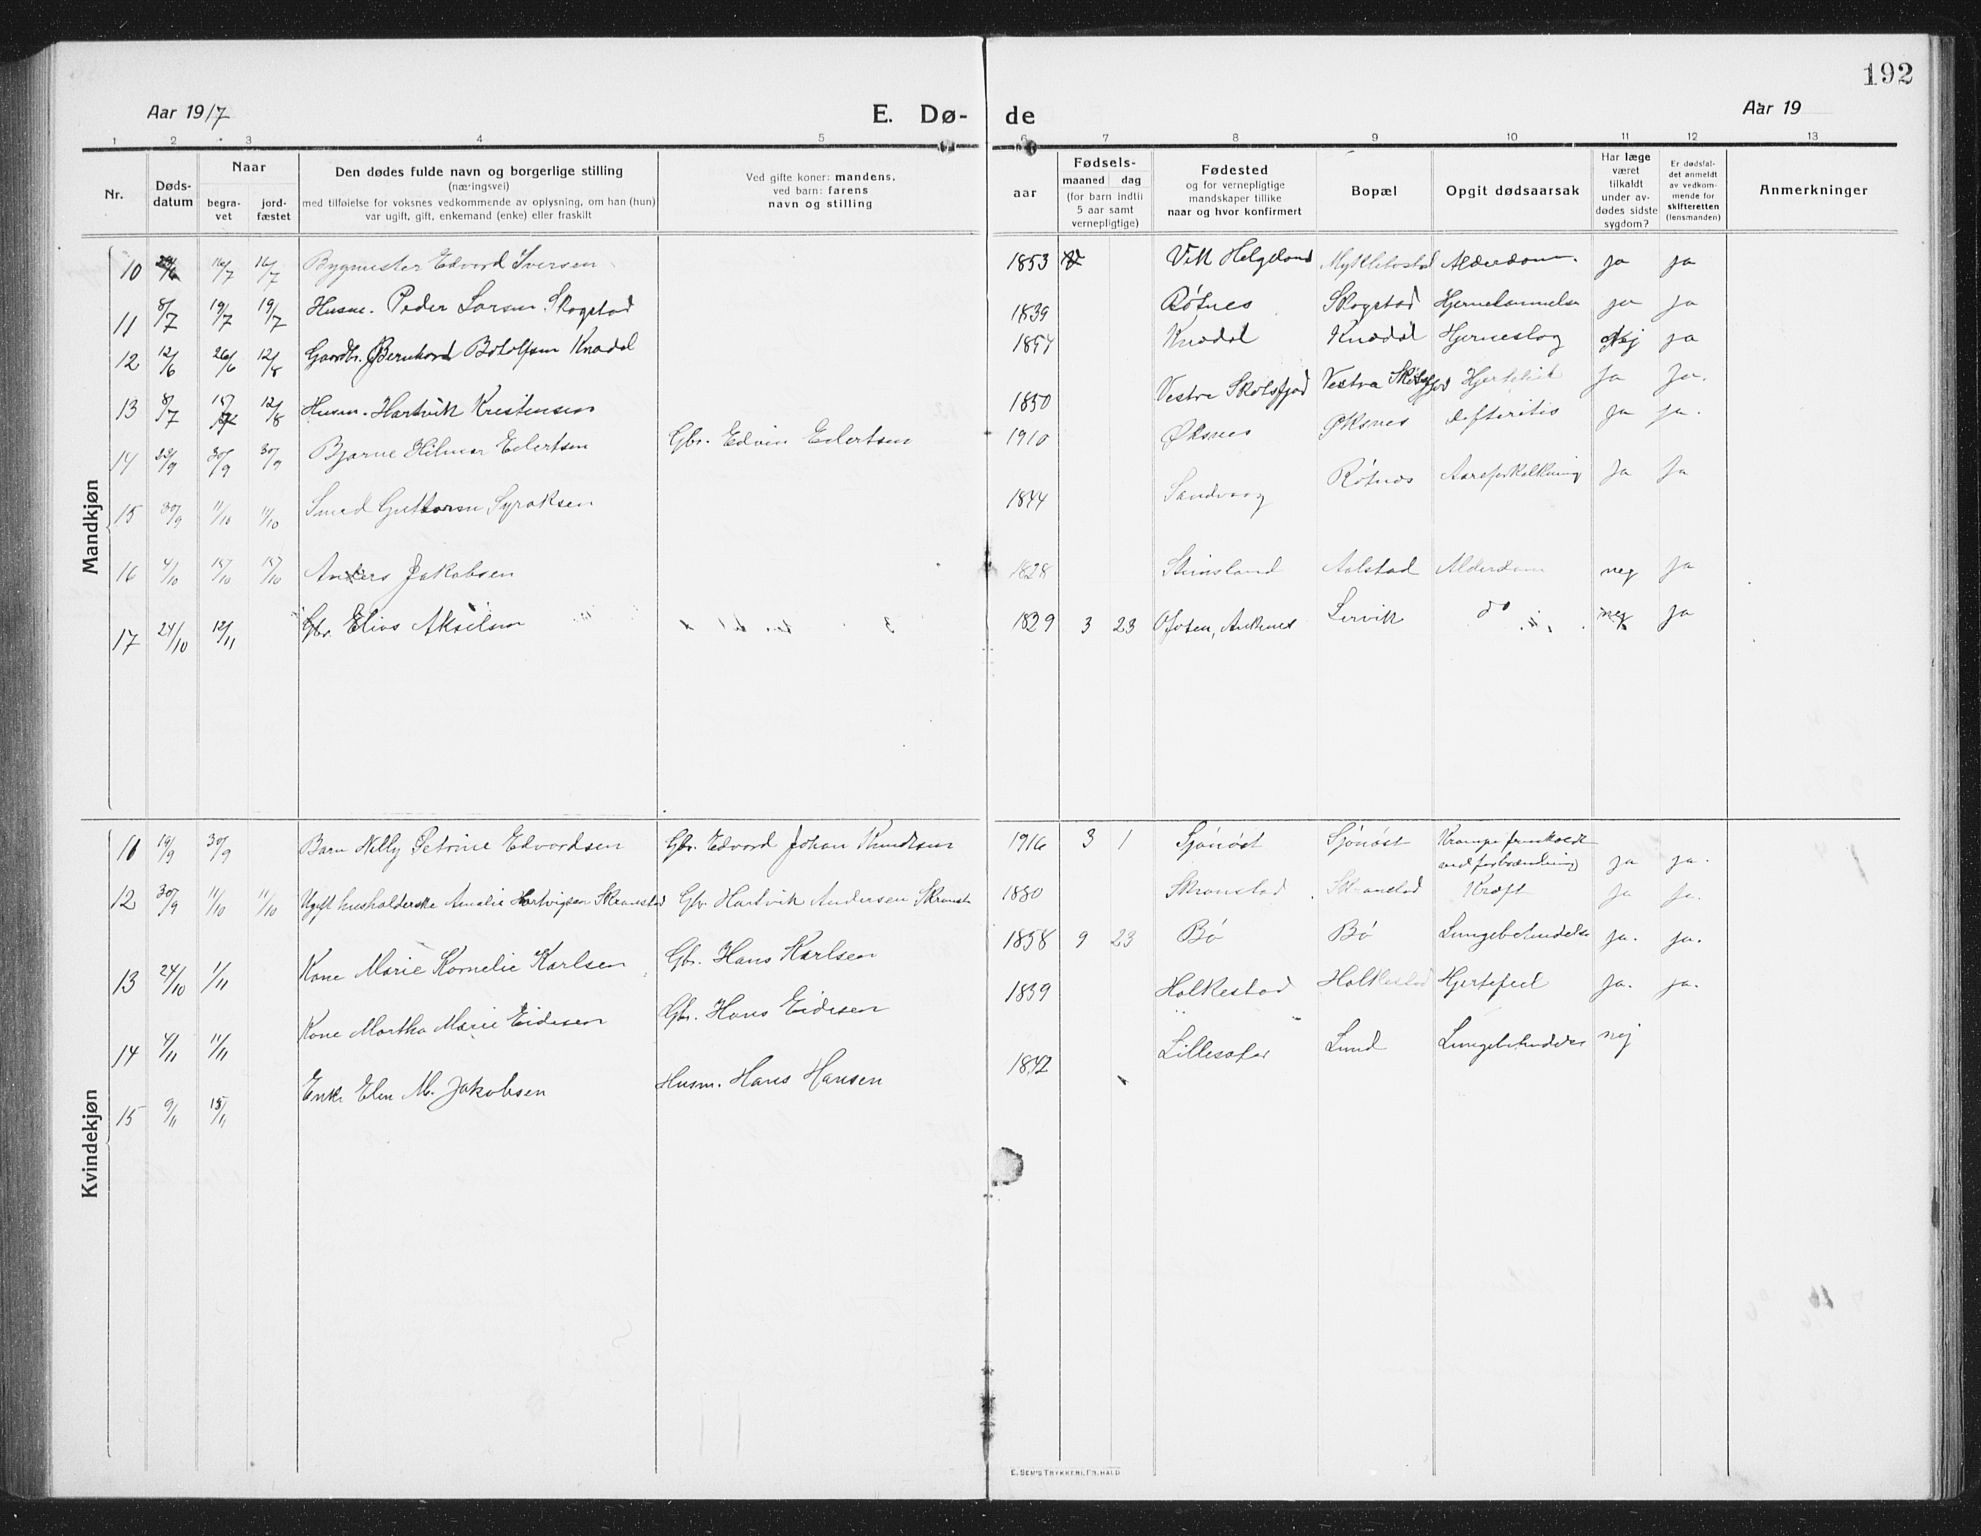 192
Aar 1917 E. Dø- de Aar 19
1 2 3 4 5 6 7 8 9 10 11 12 13
Nr.
Døds-
datum
Naar
begra-
vet
jord-
fæstet
Den dødes fulde navn og borgerlige stilling
(næringsvei)
med tilføielse for voksnes vedkommende av oplysning, om han (hun)
var ugift, gift, enkemand (enke) eller fraskilt
Ved gifte koner: mandens,
ved barn: farens
navn og stilling
aar
Fødsels-
maaned dag
(for barn indtil
5 aar samt
vernepligtige)
Fødested
og for vernepligtige
mandskaper tillike
naar og hvor konfirmert
Bopæl
Opgit dødsaarsak
Har læge
været
tilkaldt
under av-
dødes sidste
sygdom?
Er dødsfal-
det anmeldt
av vedkom-
mende for
skifteretten
(lensmanden)
Anmerkninger
Mandkjøn
10 16/7 16/7 Bygmester Edvard Iversen 1853 Vik Helgeland Alderdom ja ja
11 8/7 19/7 19/7 Husm. Peder Larsen Skogstad 1839 Røtnes Skogstad Hjernelammelse ja ja
12 12/6 26/6 12/8 Gaardbr. Bernhard Botolfsen Knædal 1857 Knædal Knædal Hjerneslag Nej ja
13 8/7 15/7 12/8 Husm. Hartvik Kristensen 1850 Vestre Skotsfjord Vestre Skotsfjord ja ja.
14 22/9 30/9 30/9 Bjarne Hilmar Eilertsen Gbr. Edvin Eilertsen 1910 Øksnes Øksnes difteritis ja ja.
15 30/9 11/10 11/10 Smed Guttorm Syraksen 1844 Sandvaag Røtnes Aareforkalkning ja ja
16 4/10 15/10 15/10 Anders Jakobsen 1828 Steinsland Aalstad Alderdom nej ja
17 24/10 12/11 Gbr. Elias Akselsen 1829 3 23 Ofoten, Ankenes Lervik do nej ja
Kvindekjøn
11 19/9 30/9 Barn Nelly Petrine Edvardsen Gbr. Edvard Johan Knudtsen 1916 3 1 Sjønøst Sjønøst Krampe fremkaldt
ved forbrænding ja ja.
12 30/9 11/10 11/10 Ugift husholderske Amalie Hartvigsen Skranstad Gbr. Hartvik Andersen Skranst. 1880 Skranstad Skranstad Kræft ja ja.
13 24/10 1/11 Kone Marie Kornelie Karlsen Gbr. Hans Karlsen 1858 9 23 Bø Bø Lungebetændelse ja. ja.
14 4/11 11/11 Kone Martha Marie Eidesen Gbr. Hans Eidesen 1839 Halkestad Halkestad Hjertefeil ja. ja.
15 9/11 15/11 Enke Elen M. Jakobsen Husm. Hans Hansen 1842 Lund Lungebetændelse nej
E. SEM'S TRYKKERI, FR.HALD